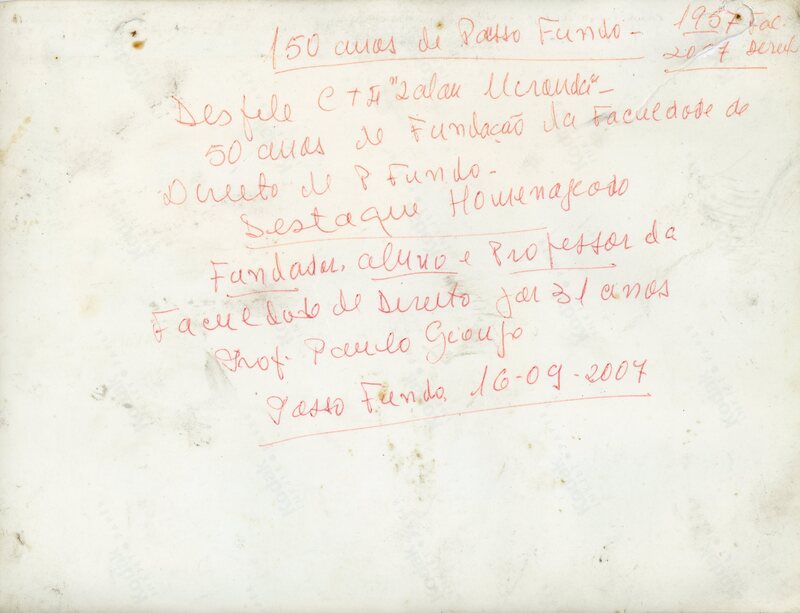 150 anos de Passo Fundo -
1957 Fac.
2007 Direito
Desfile CTG "Lalau Miranda" -
50 anos de Fundação da Faculdade de
Direito de P Fundo -
Destaque Homenageado
Fundador, aluno e Professor da
Faculdade de Direito por 31 anos
Prof. Paulo Giongo
Passo Fundo, 16-09-2007